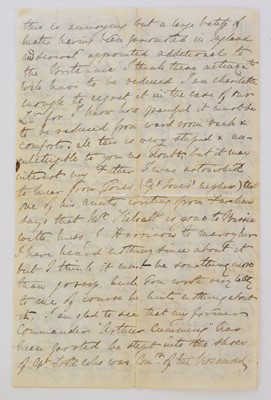 this is annoying but a large batch of
mates having been promoted in England
& several appointed additional to
the Britannia I think these acting
will have to be reduced. I am charitable
enough to regret it in the case of our
Lt for I know how painful it must be
to be reduced from ward room rank &
comforts. All this is very stupid &
to you no doubt but it may
interest my Father I was astonished
to hear from Jones (Cpt Jones' nephew) that
one of his aunts writing from Fareham
says that Mr. is going to Russia
with Miss E Harrison to marry her
I have heard nothing since about it
but I think it must be something more
than gossip.
to me of course he hints nothing about
it. I am glad to see that my former
Commander Arthur Cumming has
been posted he stept into the shoes
of Cpt who was Comr of the Rosamond